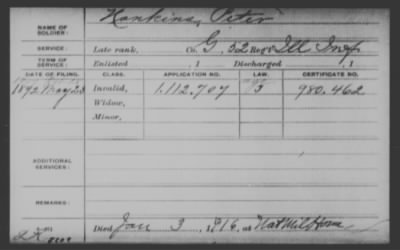 NAME OF SOLDIER: Hankins, Peter
SERVICE: Late rank, Co. G, 32 Reg't Ill Inf
TERM OF SERVICE: Enlisted , 1 Discharged , 1
DATE OF FILING. CLASS. APPLICATION NO. LAW. CERTIFICATE NO.
1892 May 23 Invalid, 1.112.707 980.462
Widow,
Minor,
ADDITIONAL SERVICES:
REMARKS:
Died Jan 3, 1916, at Nat Mil Home